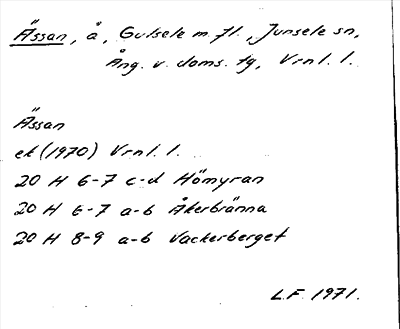 Ässan, å, Gulsele m. fl., Junsele sn,
Ång. v. doms. tg, Vrnl. l.
Ässan
ek (1970) Vrnl. l.
20 H 6-7 c-d Hömyran
20 H 6-7 a-b Åkerbränna
20 H 8-9 a-b Vackerberget
L.F. 1971.